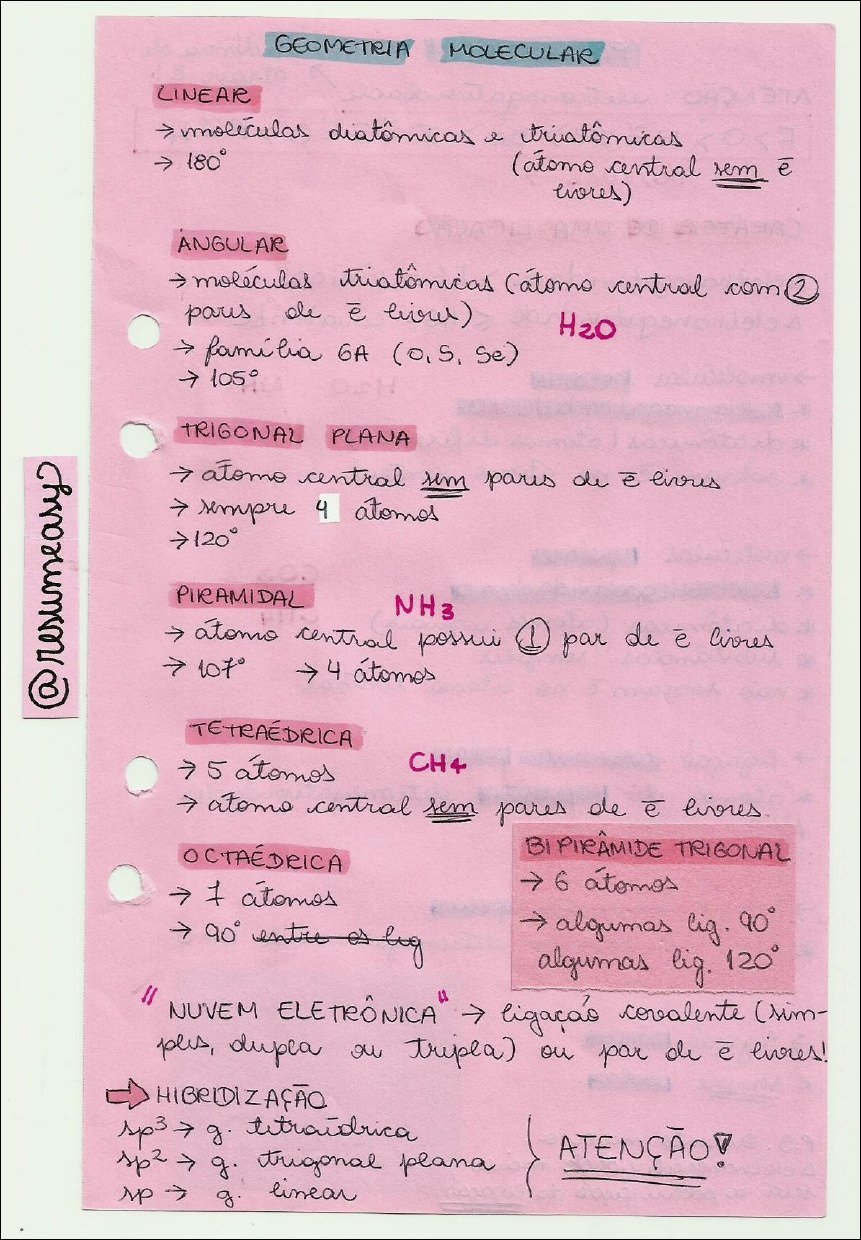 GEOMETRIA MOLECULAR
LINEAR
→ moléculas diatômicas e triatômicas
→ 180° (átomo central sem ē
livres)
ANGULAR
→ moléculas triatômicas (átomo central com 2
pares de ē livres)
H2O
→ família 6A (O, S, Se)
→ 105°
TRIGONAL PLANA
→ átomo central sem pares de ē livres
→ sempre 4 átomos
→ 120°
PIRAMIDAL
NH3
→ átomo central possui 1 par de ē livres
→ 107° → 4 átomos
TETRAÉDRICA
→ 5 átomos
CH4
→ átomo central sem pares de ē livres
OCTAÉDRICA
→ 7 átomos
→ 90° entre as lig
BIPIRÂMIDE TRIGONAL
→ 6 átomos
→ algumas lig. 90°
algumas lig. 120°
"NUVEM ELETRÔNICA" → ligação covalente (sim-
ples, dupla ou tripla) ou par de ē livres!
⇨ HIBRIDIZAÇÃO
sp³ → g. tetraédrica
sp² → g. trigonal plana
sp → g. linear
ATENÇÃO!
@resumeasy